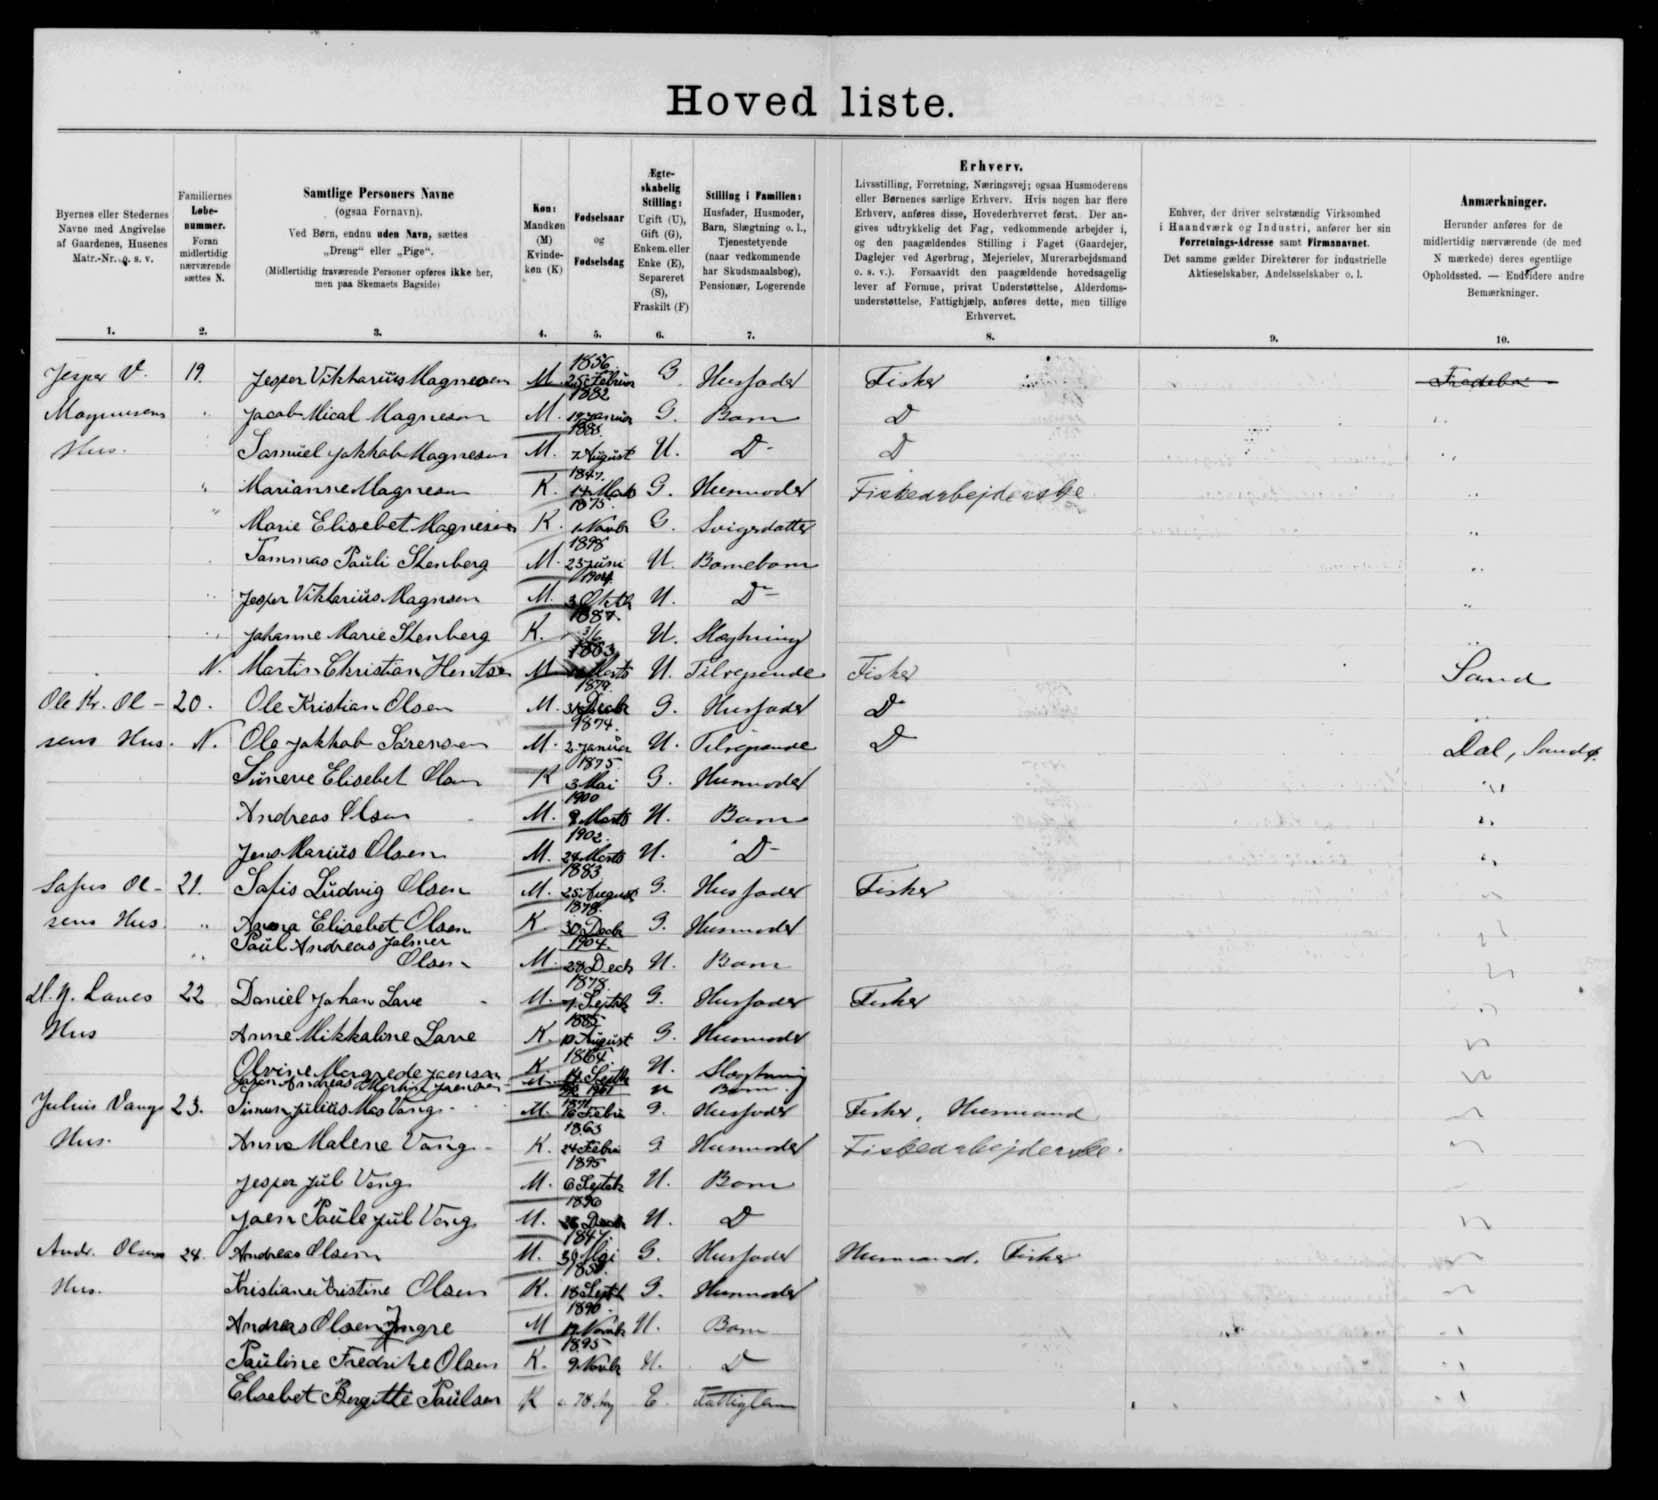 Hoved liste.
Byernes eller Stedernes
Navne med Angivelse
af Gaardenes, Husenes
Matr.-Nr. o. s. v.
1.
Familiernes
Løbe-
nummer.
Foran
midlertidig
nærværende
sættes N.
2.
Samtlige Personers Navne
(ogsaa Fornavn).
Ved Børn, endnu uden Navn, sættes
„Dreng“ eller „Pige“.
(Midlertidig fraværende Personer opføres ikke her,
men paa Skemaets Bagside)
3.
Køn:
Mandkøn
(M)
Kvinde-
køn (K)
4.
Fødselsaar
og
Fødselsdag
5.
Ægte-
skabelig
Stilling:
Ugift (U),
Gift (G),
Enkem. eller
Enke (E),
Separeret
(S),
Fraskilt (F)
6.
Stilling i Familien:
Husfader, Husmoder,
Barn, Slægtning o. l.,
Tjenestetyende
(naar vedkommende
har Skudsmaalsbog),
Pensionær, Logerende
7.
Erhverv.
Livsstilling, Forretning, Næringsvej; ogsaa Husmoderens
eller Børnenes særlige Erhverv. Hvis nogen har flere
Erhverv, anføres disse, Hovederhvervet først. Der an-
gives udtrykkelig det Fag, vedkommende arbejder i,
og den paagældendes Stilling i Faget (Gaardejer,
Daglejer ved Agerbrug, Mejerielev, Murerarbejdsmand
o. s. v.). Forsaavidt den paagældende hovedsagelig
lever af Formue, privat Understøttelse, Alderdoms-
understøttelse, Fattighjælp, anføres dette, men tillige
Erhvervet.
8.
Enhver, der driver selvstændig Virksomhed
i Haandværk og Industri, anfører her sin
Forretnings-Adresse samt Firmanavnet.
Det samme gælder Direktører for industrielle
Aktieselskaber, Andelsselskaber o. l.
9.
Anmærkninger.
Herunder anføres for de
midlertidig nærværende (de med
N mærkede) deres egentlige
Opholdssted. — Endvidere andre
Bemærkninger.
10.
Jesper V. 19. Jesper Viktarius Magnesen M. 1856 25 Februar G. Husfader Fisker
Magnusens Jacob Mical Magnesen M. 1882 19 Januar G. Barn D
Hus. Samuel Jakkob Magnesen M. 7 August U. D D
Marianne Magnesen K. 1847 Marts G. Husmoder Fiskearbejderske
Marie Elisebet Magnesen K. 1875 1 Novbr G. Svigerdatter
Tammas Pauli Stenberg M. 1898 23 Juni U. Barnebarn
Jesper Viktarius Magnsen M. 1904 3 Oktb U. D
Johanne Marie Stenberg K. 1887 3/6 U. Slægtning
N. Martin Christian Hentse M. 1883 Marts U. Tilrejsende Fisker Sand
Ole Kr. Ol- 20. Ole Kristian Olsen M. 1879 31 Decbr G. Husfader D
sens Hus. N. Ole Jakkob Sørensen M. 1874 2 Januar U. Tilrejsende D Dal, Sandø
Sunneve Elisebet Olsen K 1875 3 Mai G. Husmoder
Andreas Olsen M. 1900 Marts U. Barn
Jens Marius Olsen M. 1902 24 Marts U. D
Safus Ol- 21. Safis Ludvig Olsen M. 1883 25 August G. Husfader Fisker
sens Hus Anna Elisebet Olsen K 1878 30 Decbr G. Husmoder
Paul Andreas Jalmer
Olsen M. 1904 28 Decb U. Barn
Laves 22 Daniel Johan Lave M. 1878 7 Septbr G. Husfader Fisker
Hus Anne Mikkaline Lave K. 1885 10 August G. Husmoder
Olvine Margrede Joensen K. 1864 14 Septbr U. Slægtning
Joen Andreas Martin Joensen M. U Barn
Julius Vangs 23. Simun Julius Mas Vang M. 1871 16 Febr G. Husfader Fisker, Husmand
Hus. Anna Malene Vang K. 1863 24 Febr G Husmoder Fiskearbejderske.
Jesper Jul Vang M. 1895 6 Septbr U. Barn
Joen Paule Jul Vang M. 1896 Decbr U. D
Andr. Olsens 24. Andreas Olsen M. 1847 30 Mai G. Husfader Husmand. Fisker
Hus. Kristiane Kristine Olsen K. 18 Septb G. Husmoder
Andreas Olsen Yngre M 1890 17 Novbr U. Barn
Pauline Fredrike Olsen K. 1895 9 Novbr U. D
Elsebet Birgitte Paulsen K c. 78 Aar E. Fattiglem